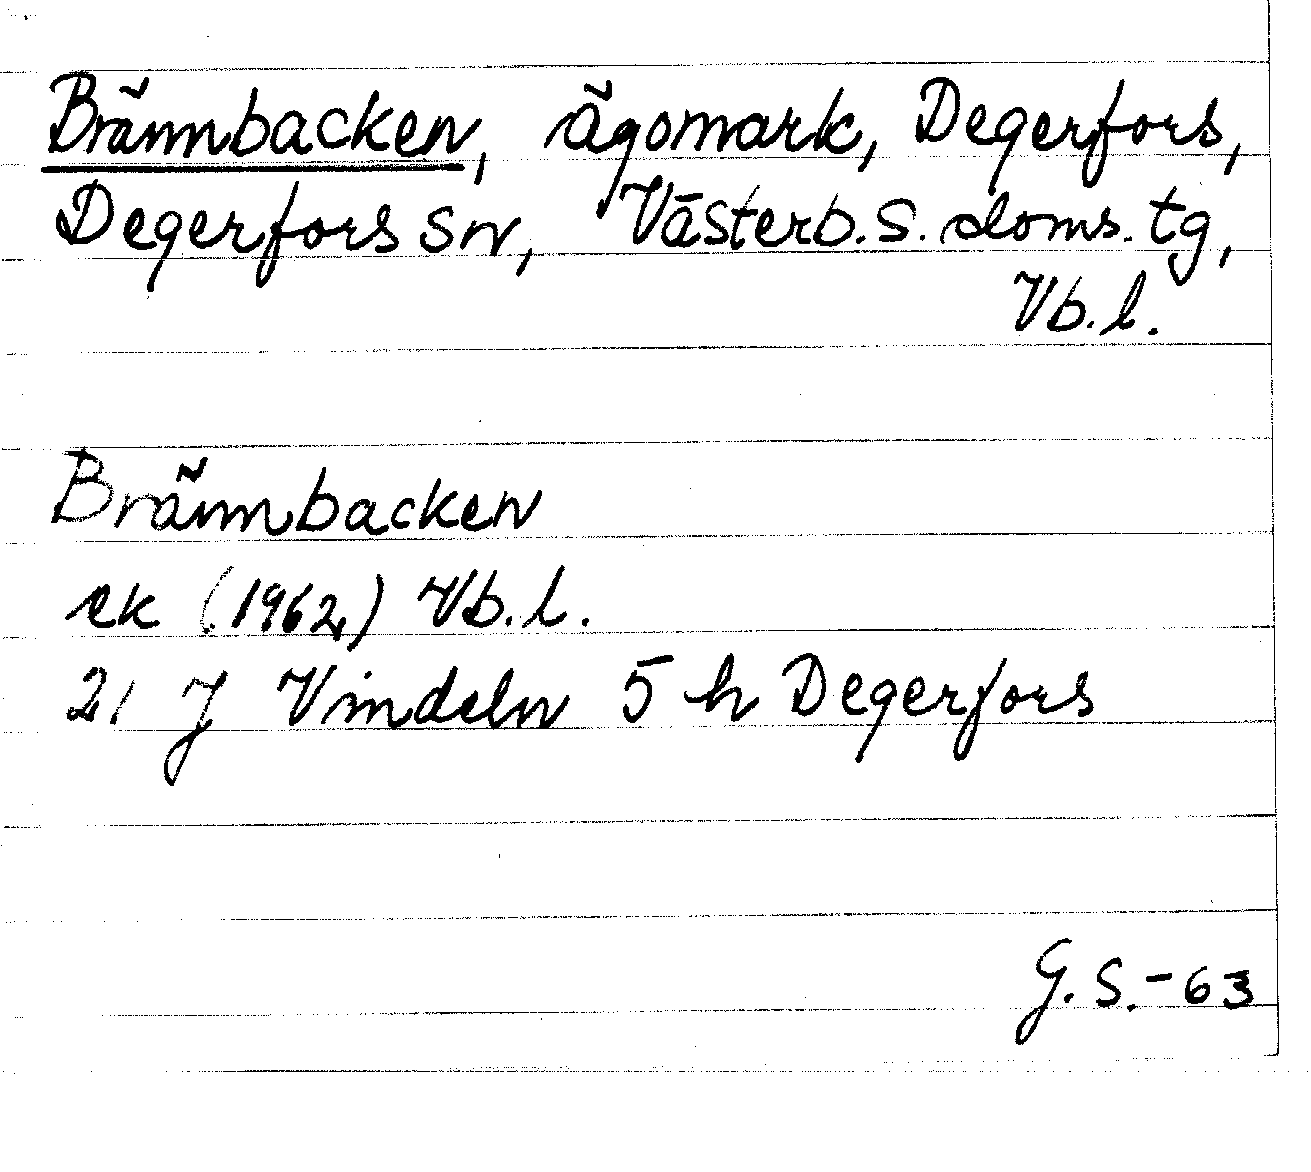 Brännbacken, ägomark, Degerfors,
Degerfors sn, Västerb. S. doms. tg,
Vb. l.
Brännbacken
ek (1962) Vb. l.
21 J Vindeln 5 h Degerfors
G. S. - 63